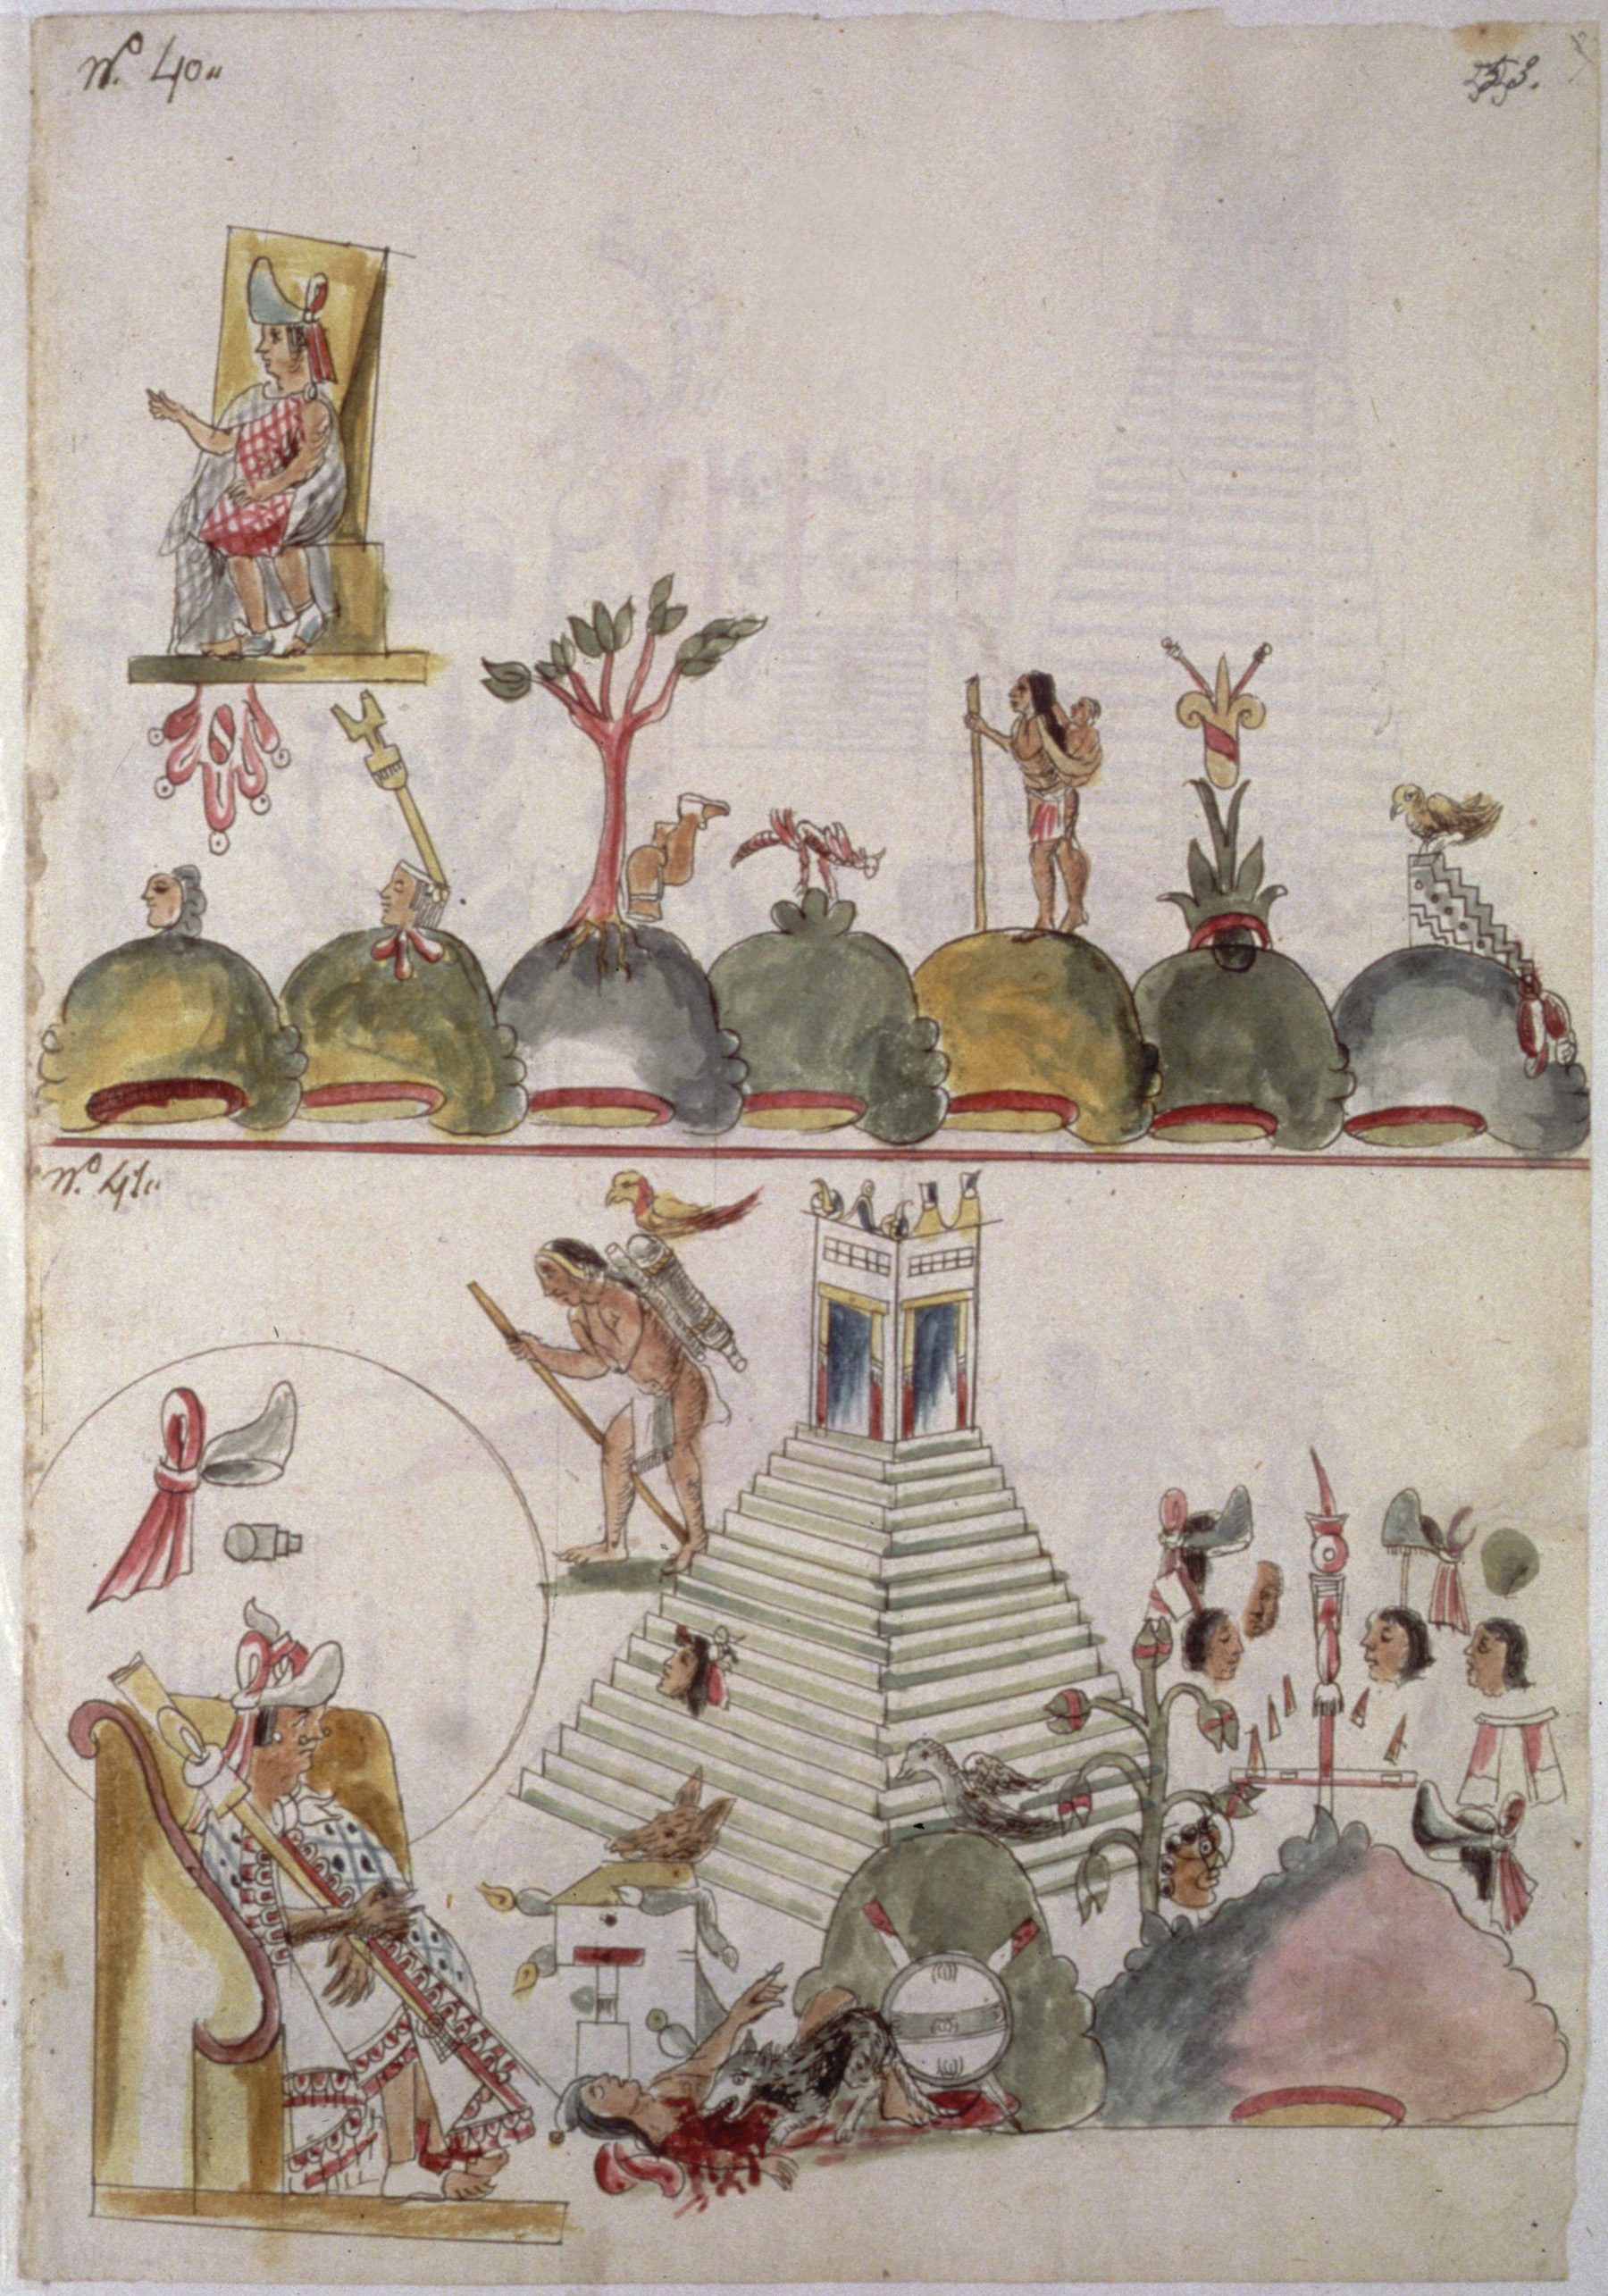 Nº. 40,,
Nº. 41,,